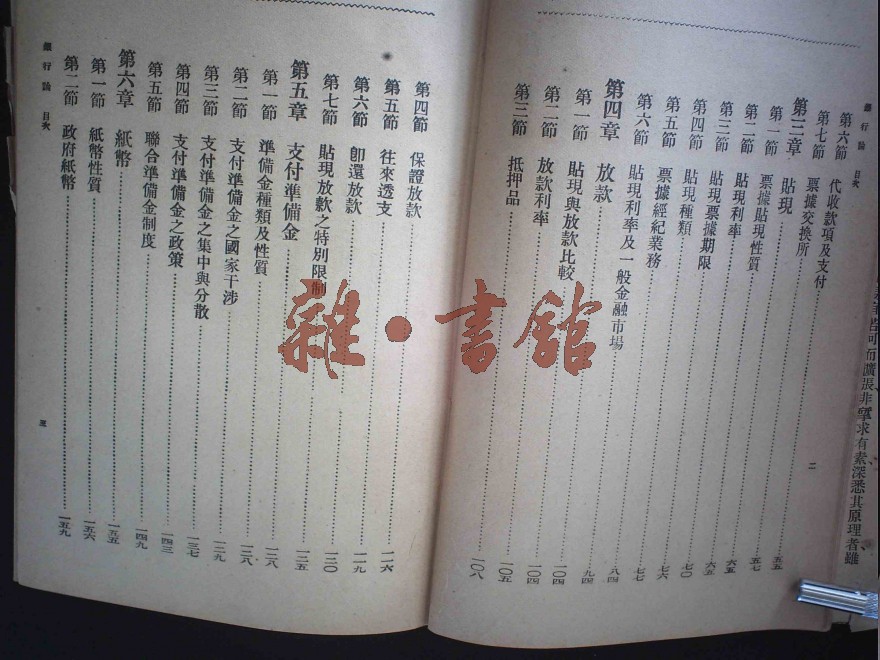 皆可而擴張非實求有素深悉其原理者雖
銀行論 目次
二
第六節 代收款項及支付 五五
第七節 票據交換所 五七
第三章 貼現 六五
第一節 票據貼現性質 六五
第二節 貼現利率 七〇
第三節 貼現票據期限 七六
第四節 貼現種類 七七
第五節 票據經紀業務 八四
第六節 貼現利率及一般金融市場 九四
第四章 放款 一〇四
第一節 貼現與放款比較 一〇四
第二節 放款利率 一〇五
第三節 抵押品 一〇八
第四節 保證放款 一一六
第五節 往來透支 一一九
第六節 卽還放款 一二〇
第七節 貼現放款之特別限制 一二五
第五章 支付準備金 一二八
第一節 準備金種類及性質 一二八
第二節 支付準備金之國家干涉 一二九
第三節 支付準備金之集中與分散 一三七
第四節 支付準備金之政策 一四三
第五節 聯合準備金制度 一四九
第六章 紙幣 一五五
第一節 紙幣性質 一五六
第二節 政府紙幣 一五九
銀行論 目次
三
雜·書館